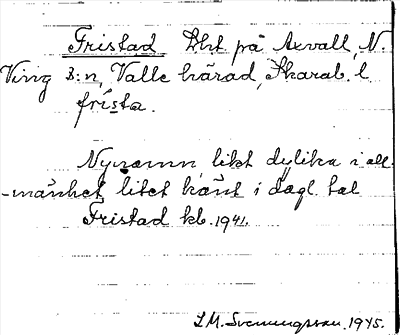 Fristad Lht på Axvall, N.
Ving s:n, Valle härad, Skarab. l
frista.
Nynamn, likt dylika i all-
-mänhet litet känt i dagl. tal
Fristad kb. 1941.
S.M. Svenungsson. 1945.